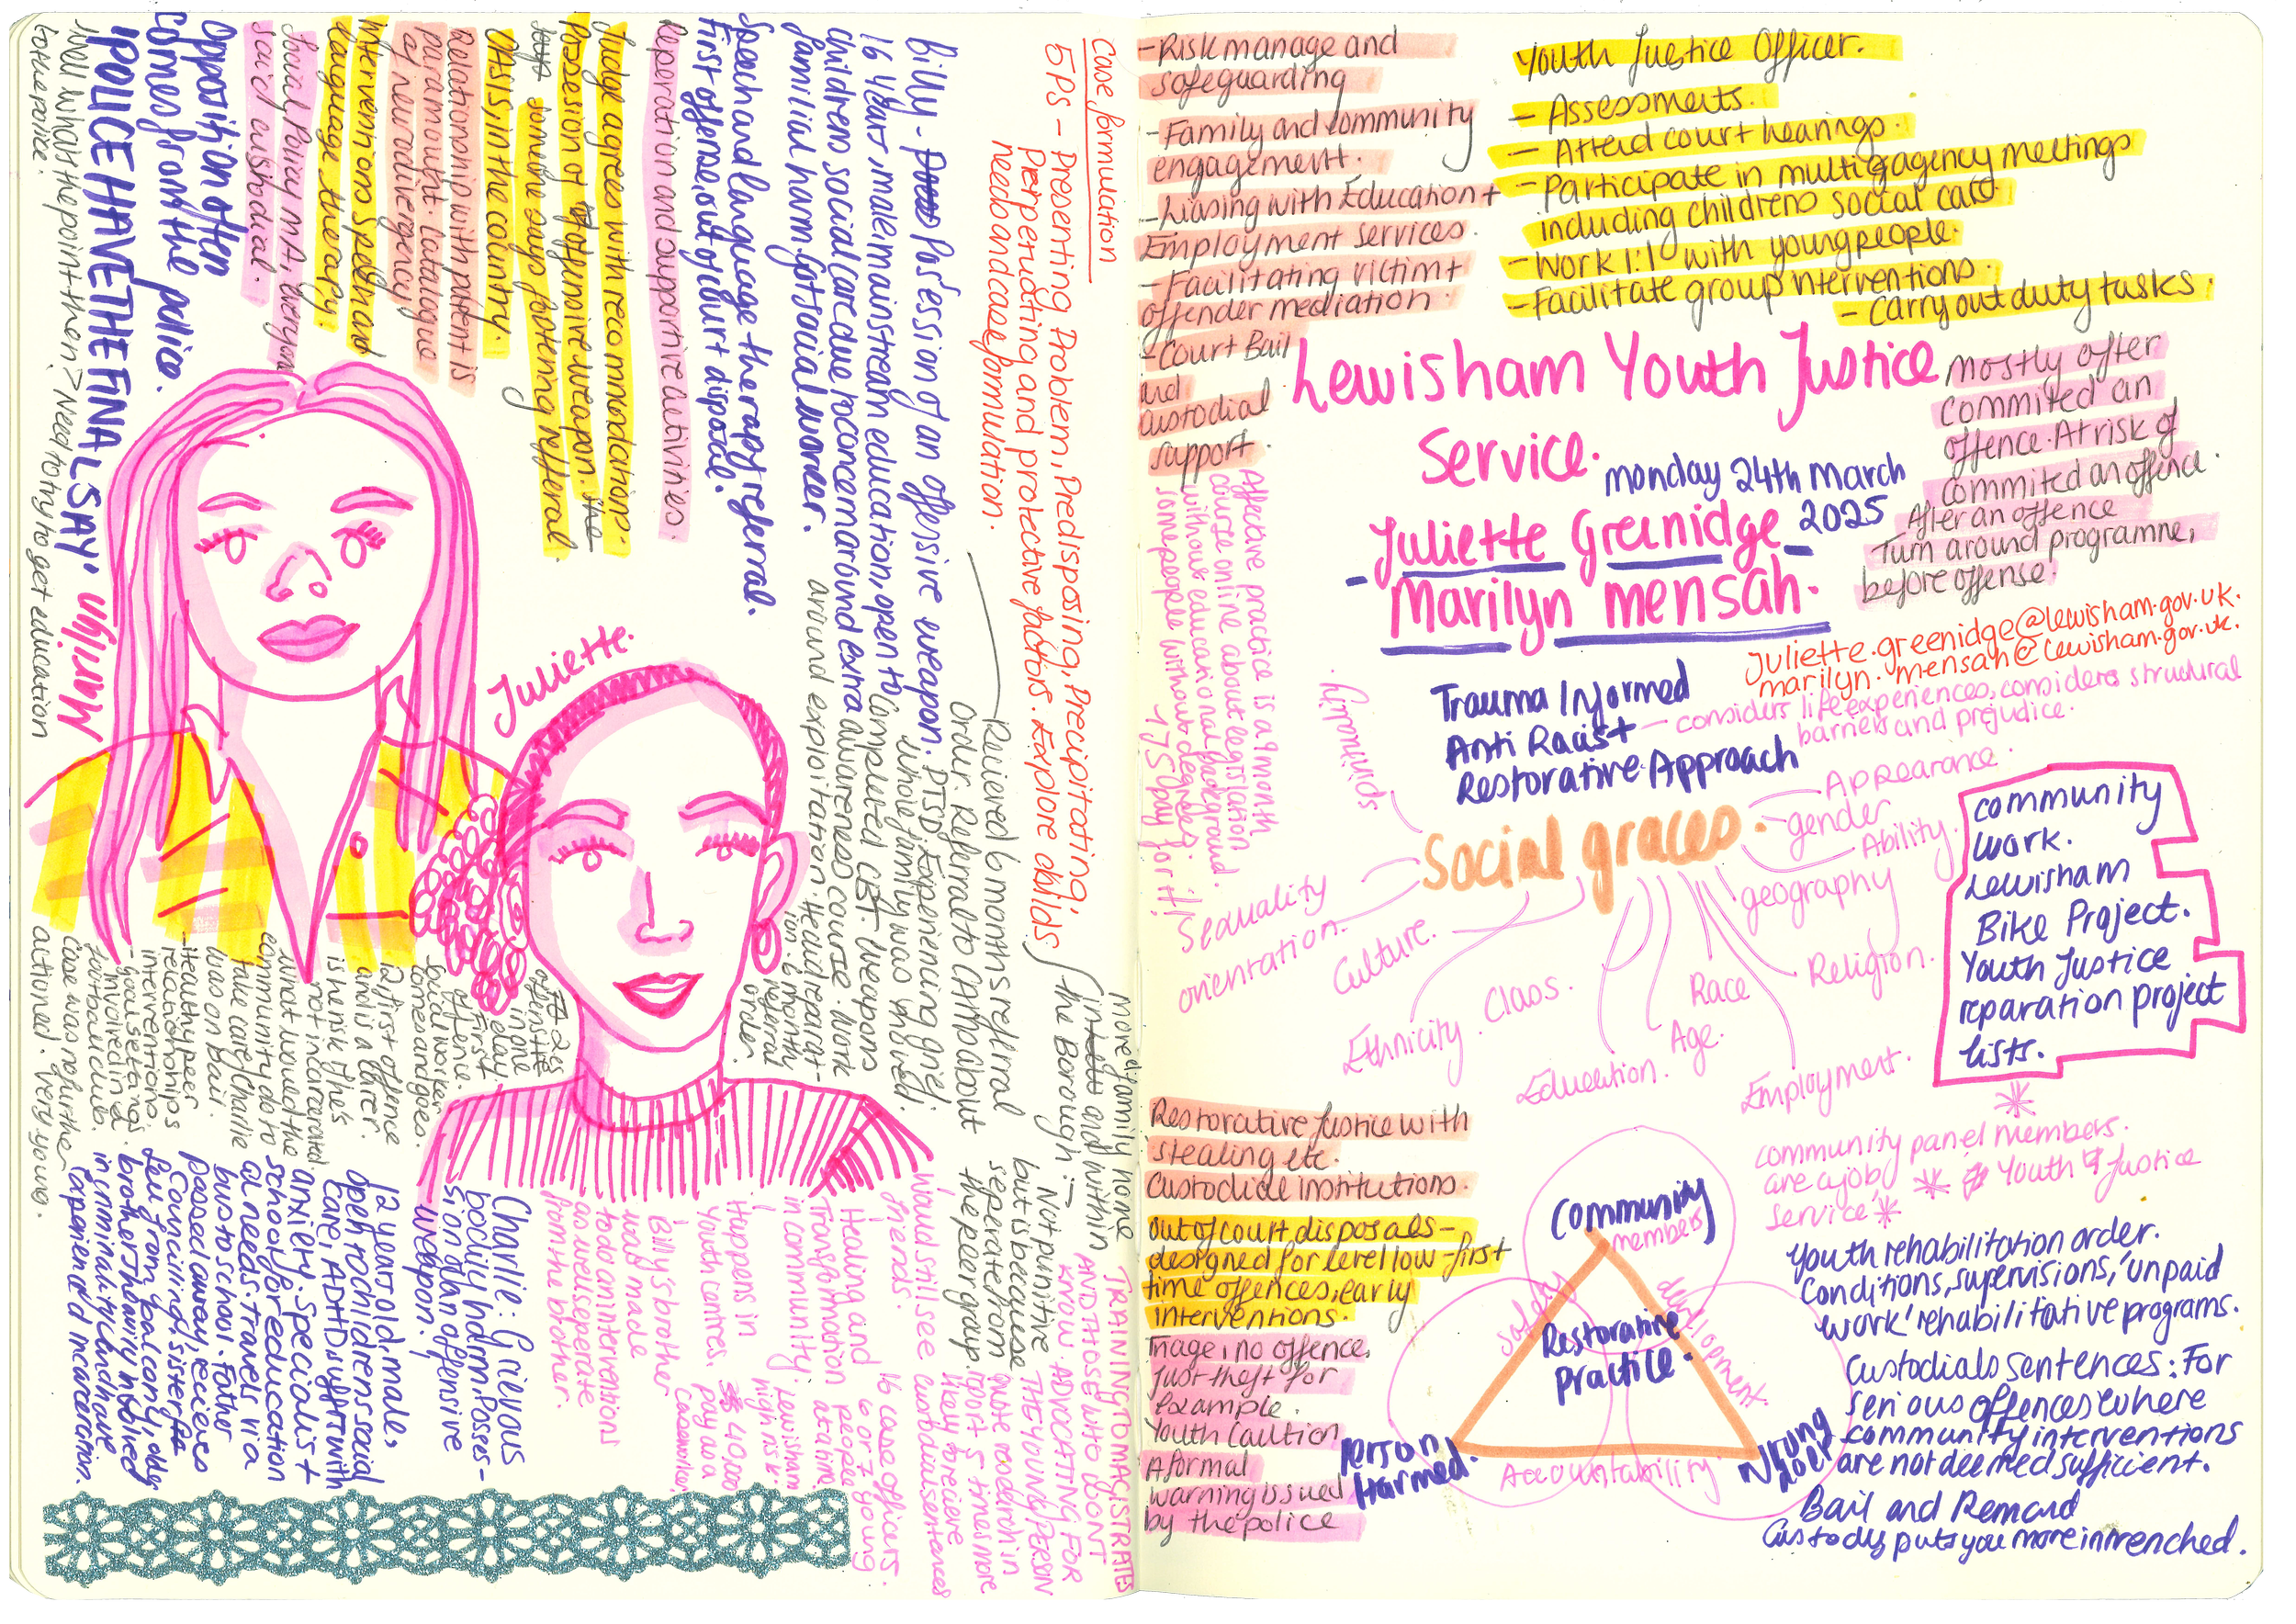 Case formulation
5Ps - Presenting Problem, Predisposing, Precipitating,
Perpetuating and protective factors. Explore childs
needs and case formulation.
Billy - Possession of an offensive weapon.
16 year male mainstream education, open to
childrens social care due to concerns around extra
familial harm. Got social worker.
Speech and language therapy referral.
First offense, out of court disposal.
Reparation and supportive activities.
Judge agrees with recommendations.
Possesion of offensive weapon. the
someone says fostering referral.
OASIS, in the country.
Relationship with patent is
paramount. Catalogue
of neurodivergency,
interventions Speech and
language therapy.
Social Policy MA, everyone
said custodial.
Opposition often
comes from the police.
'POLICE HAVE THE FINAL SAY.'
'Well what the point then?' Need to try to get education
to reprioritise.
Marilyn
Juliette.
PTSD. Experiencing grief
whole family was grieved.
Completed CBT. Weapons
awareness course. Work
around exploitation. He did reparat-
ion. 6 month
referral
order.
Recieved 6 months referral
order. Referral to CAMHS about
the Borough
and within
more family home
- Not punitive
but is because
seperate from
the peer group.
Would still see
friends.
Healing and
Transformation
in community.
Happens in
Youth centres.
Billy's brother
was made
to do an interventions
as well seperate
from the brother.
16 case officers.
6 or 7 young
people
at a time.
Lewisham
high risk.
40,000
pay as a
caseworker
TRAINING TO MAGISTRATES
AND THOSE WHO DON'T
KNOW. ADVOCATING FOR
THE YOUNG PERSON
they recieve
custodial sentences
Charlie: Grievous
bodily harm. Posses-
sion of an offensive
weapon.
12 year old, male,
open to childrens social
care, ADHD, suffer with
anxiety. Specialist
school for education
al needs. travels via
bus to school. Father
passed away, recieves
Councilling, sister
few from goal coming, older
brothers heavily involved
in criminality and have
experienced incarceration.
offensive
in one
day.
First
offence.
Social worker
comes and goes.
12, first offence
and is a carer.
is he risk if he's
not incarcerated
what would the
community do to
take care, Charlie
was on bail.
- Healthy peer
relationships
interventions
- goal setting.
- Involved in a
football club.
Case was no further
actioned. Very young.
- Risk manage and
safeguarding
- Family and community
engagement.
- Liasing with Education +
Employment services.
- Facilitating victim +
offender mediation.
- Court Bail
and
custodial
support.
Affective practice is a month
course online about legislation
without educational background.
some people without degrees.
→ 175 pay for it!
Youth Justice Officer.
- Assessments.
- Attend court hearings.
- Participate in multi agency meetings
including childrens social care
- Work 1:1 with young people.
- Facilitate group interventions.
- Carry out duty tasks.
Lewisham Youth Justice
Service.
Monday 24th March
2025
Juliette Greenidge
- Marilyn Mensah.
Mostly ofter
commited an
offence. At risk of
commited an offence.
After an offence
Turn around programme,
before offense.
Juliette.greenidge@lewisham.gov.uk.
marilyn.mensah@lewisham.gov.uk.
Trauma Informed
Anti Racist
Restorative Approach
- considers life experiences, considers structural
barriers and prejudice.
Social graces.
Appearance.
gender
Ability.
geography
Religion.
Race
Age.
Employment.
Education.
Class.
Ethnicity.
Culture.
Sexuality
orientation.
community
work.
Lewisham
Bike Project.
Youth Justice
reparation project
lists.
community panel members.
are a job * Youth Justice
Service *
Restorative Justice with
stealing etc.
Custodial institutions.
Out of court disposals -
designed for level low - first
time offences, early
interventions.
Triage, no offence,
just theft for
example.
Youth Caution
A formal
warning issued
by the police
Community
members
safety
development.
Restorative
practice.
Person
Harmed.
Accountability
Wrong
doer
Youth rehabilitation order.
Conditions, supervisions, 'unpaid
work' rehabilitative programs.
Custodial sentences: For
serious offences where
community interventions
are not deemed sufficient.
Bail and Remand
Custody puts you more intrenched.